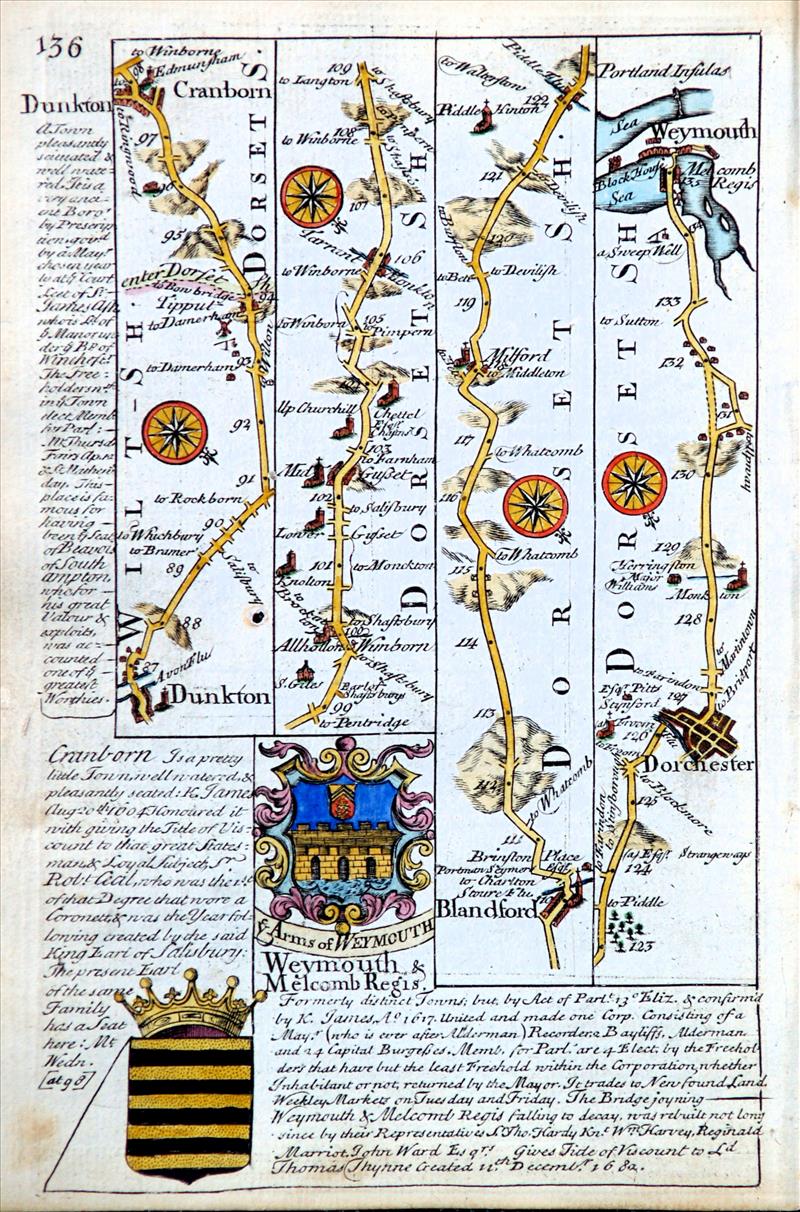 136
Dunkton
A Town
pleasantly
scituated &
well wate-
red. It is a
very anci-
ent Boro.
by Prescrip-
tion, gov.d
by a May.r
chosen year
ly at y.e Court
Leet of S.r
James Ash
who is L.d of
y.e Manor un-
der y.e B.p of
Winchest.r
The Free-
holders
in y.e Town
elect Memb.
for Parl.t
M.t Thursd.
Fairs
day. This
place is fa-
mous for
having
been y.e Seat
of Beavois
of South
ampton,
who for
his great
Valour &
exploits,
was ac-
counted
one of y.e
greatest
Worthies.
to Winborne
Edmunsham
98
Cranborn
to Ringwood
97
96
95
enter Dorset Sh.
to Bowbridge
94
Tipput
to Damerham
to Wilton
93
to Damerham
92
91
to Rockborn
90
to Whichbury
to Bramer
89
to Salisbury
88
87
Avon Flu
Dunkton
WILT-SH.
DORSET S.
109
to Langton
to Shaftsbury
to Pimpern
108
to Winborne
to Shaftsbury
107
Tarrent
106
to Winborne
Monkton
105
to Winborn
to Pimpern
104
Up Churchill
Chettel
Esq.r Chafins
103
to Farnham
Mid Gusset
102
to Salisbury
Lower Gusset
101
to Monckton
Knolton
to Brockin
to Shaftsbury
100
Allhollon Wimborn
to Shaftsbury
S.t Giles
Earl of Shaftsburys
99
to Pentridge
DORSET SH
to Walterstow
Piddle
122
Piddle Hinton
121
to Devilish
120
to Burston
to Bett
to Devilish
119
Milford
118
to Middleton
117
to Whatcomb
116
to Whatcomb
115
114
113
112
to Whatcomb
111
Brinston Place
Portman Seymer Esq.r
to Charlton
Stoure Flu
110
Blandford
DORSET SH.
Portland Insulas
Sea
Weymouth
Block House
Sea
Melcomb
Regis
135
134
a Sweep Well
133
to Sutton
132
131
to Upway
130
129
Herringston
Major
Williams
Monkton
128
to Martintown
to Bridport
to Farindon
Esq.r Pitts
Stynford
127
Froom Flu
to Froom
126
Dorchester
to Farindon
to Winsborn
125
to Blockmore
(a) Esq.r Strangeways
124
to Piddle
123
DORSET SH
Cranborn Is a pretty
little Town, well watered, &
pleasantly seated: K. James
Aug. 20th 1604 Honoured it
with giving the Title of Vis-
count to that great States-
man & Loyal Subject, S.r
Rob.t Cecil, who was the 1.st
of that Degree that wore a
Coronett, & was the Year fol-
lowing created by the said
King Earl of Salisbury.
The present Earl
of the same
Family
has a Seat
here: M.t
Wedn.
[at 98]
y.e Arms of WEYMOUTH
Weymouth &
Melcomb Regis.
Formerly distinct Towns; but, by Act of Parl.t 13.o Eliz. & confirm'd
by K. James, A.o 1617. United and made one Corp. Consisting of a
May.r (who is ever after Alderman) Recorder 2 Bayliffs, Alderman.
and 24 Capital Burgesses. Memb. for Parl.t are 4 Elect. by the Freehol-
ders that have but the least Freehold within the Corporation, whether
Inhabitant or not, returned by the Mayor. It trades to New found Land.
Weekley Markets on Tuesday and Friday. The Bridge joyning
Weymouth & Melcomb Regis falling to decay, was rebuilt not long
since by their Representatives S.r Tho. Hardy Kn.t W.m Harvey, Reginald
Marriot, John Ward Esq.rs Gives Title of Viscount to L.d
Thomas Thynne Created 11.th Decemb.r 1682.